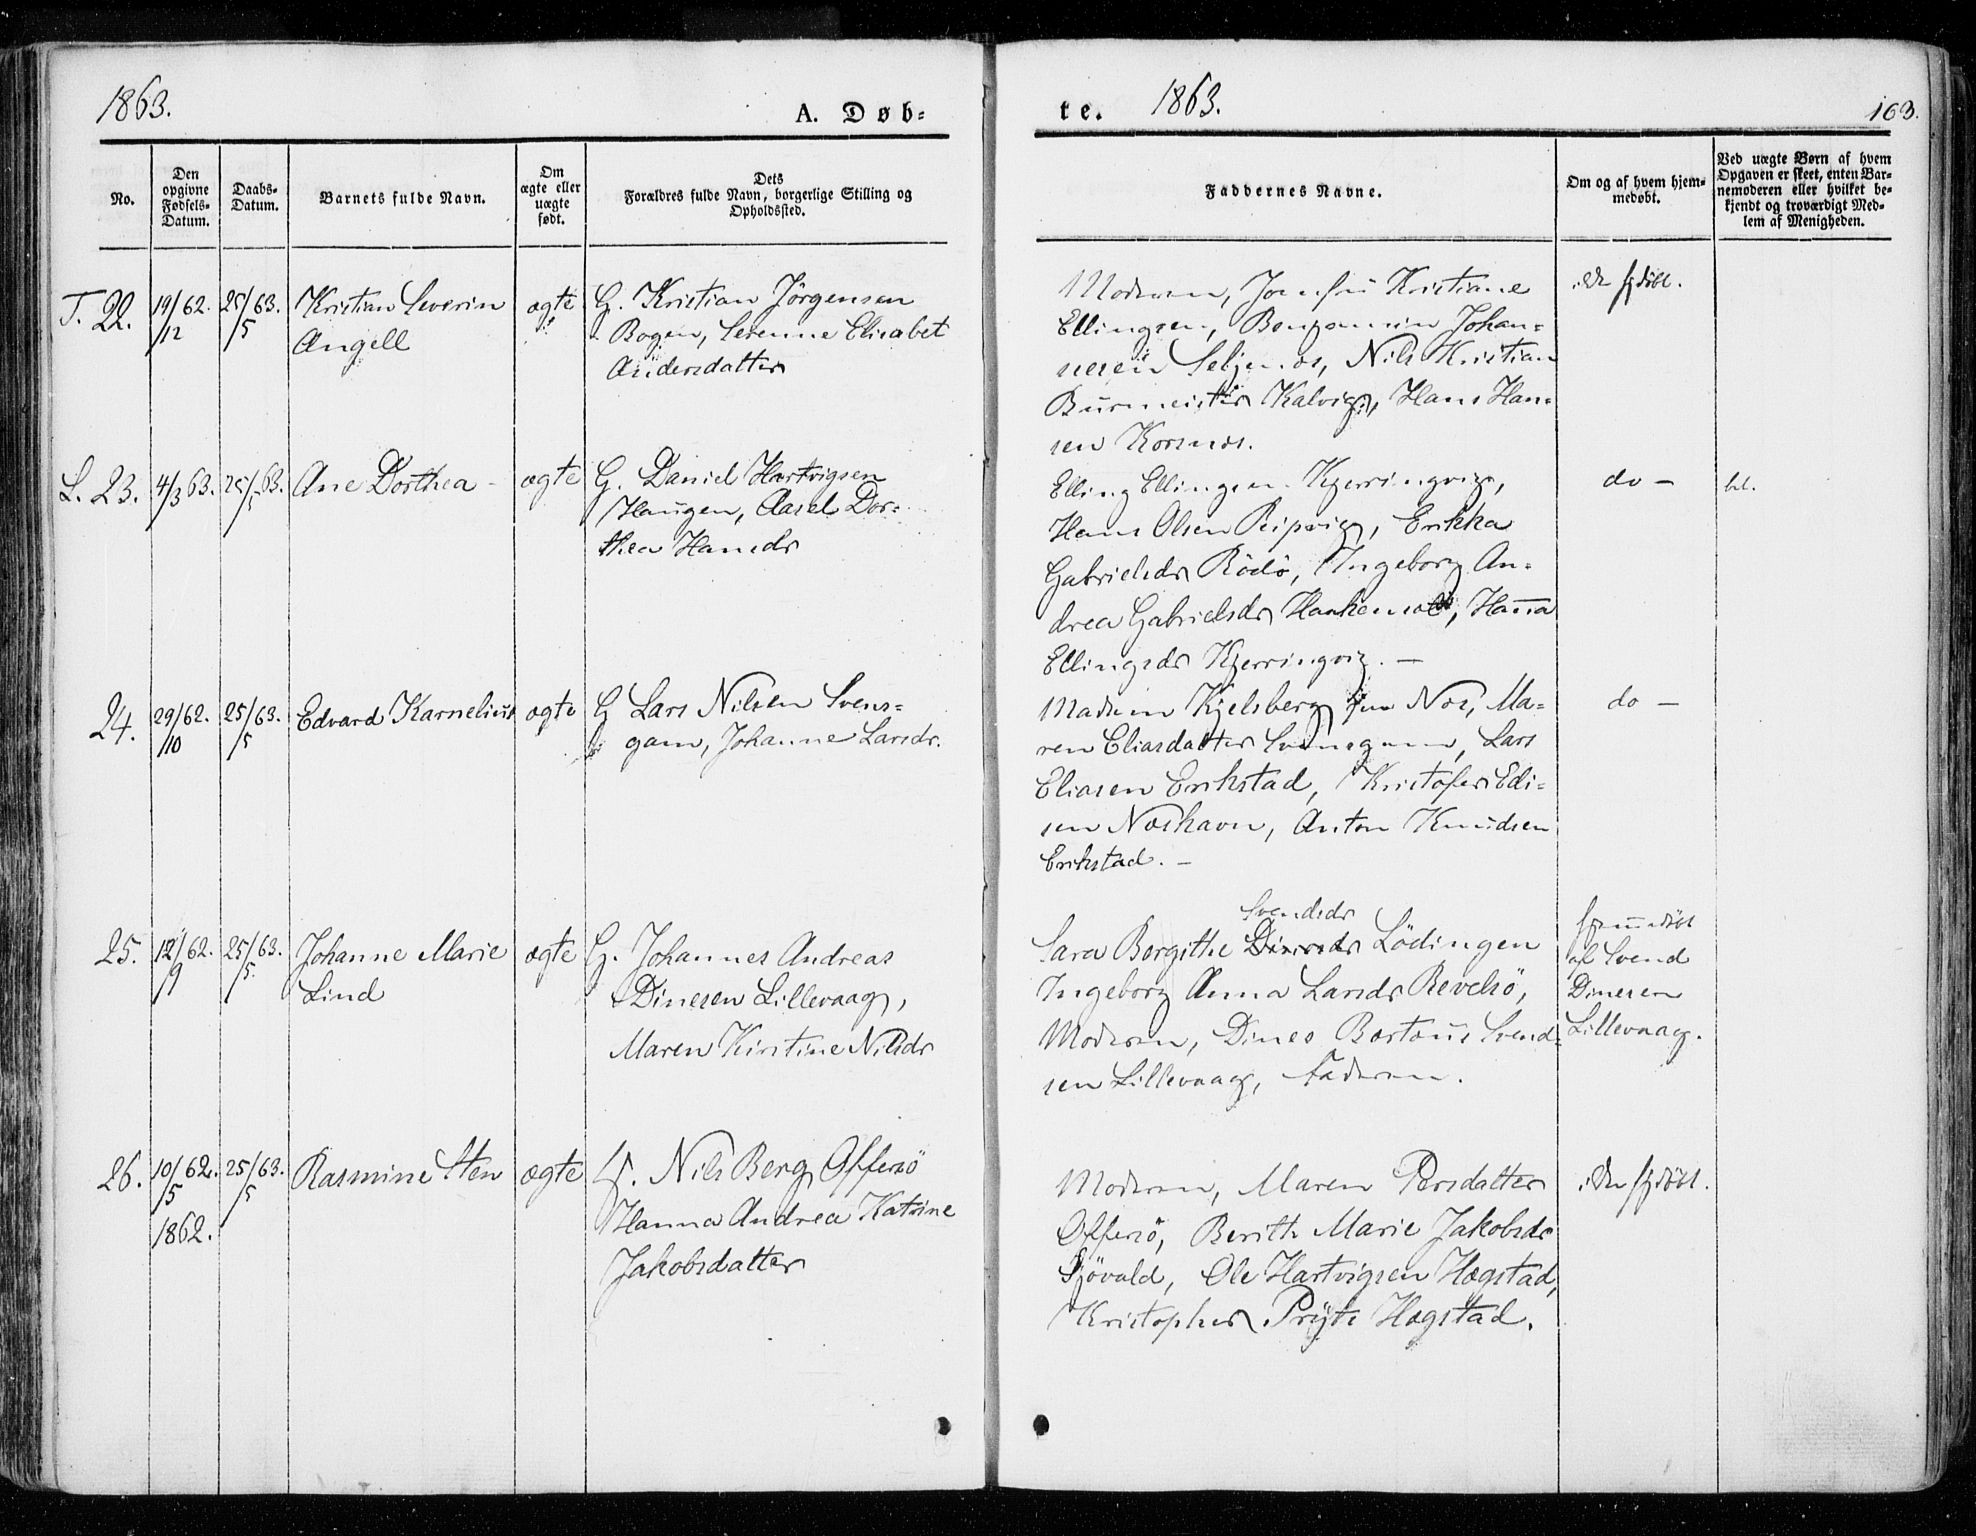 1863.
A. Døb-
te.
1863.
163.
No.
Den opgivne Fødsels-Datum.
Daabs-Datum.
Barnets fulde Navn.
Om ægte eller uægte født.
Dets Forældres fulde Navn, borgerlige Stilling og Opholdssted.
Faddernes Navne.
Om og af hvem hjem-medøbt.
Ved uægte Børn af hvem Opgaven er skeet, enten Bar-nemoderen eller hvilket be-kjendt og troværdigt Med-lem af Menigheden.
T. 22. 19/12 62. 25/5 63. Kristian Severin ægte G. Kristian Jörgensen
Angell Bogen, Serenne Elisabet
Andersdatter
Moderen, Jomfru Kristiane
Ellingsen, Benjamin Johan-
nesen Seljenæs, Nils Kristian
Burmeister Kalvig, Hans Han-
sen Korsnæs.
L. 23. 4/3 63. 25/5 63. Ane Dorthea - ægte G. Daniel Hartvigsen
Haugen, Aasel Dor-
thea Hansdr
Elling Ellingsen Kjerringvig, do -
Hans Olsen Reipvig, Erikka
Gabrielsdr Rödö, Ingeborg An-
drea Gabrielsdr, Hanna
Ellingsdr Kjerringvig. -
24. 29/10 62. 25/5 63. Edvard Karnelius ægte G Lars Nilsen Svens-
gam, Johanne Larsdr.
Kjelsberg Næs, Ma- do -
ren Eliasdatter Svensgam, Lars
Eliasen Erikstad, Kristofer Edi-
sen Næshavn, Anton Knudsen
Erikstad. -
25. 12/9 62. 25/5 63. Johanne Marie ægte G. Johannes Andreas
Lind Dinesen Lillevaag,
Maren Kirstine Nilsdr
Svendsdr
Sara Bergithe Dinesdr Lödingen
Ingeborg Anna Larsdr Revelsö,
Moderen, Dines Bartous Svend-
sen Lillevaag, Faderen.
hjemmedöbt
af Svend
Dinesen
Lillevaag.
26. 10/5 62. 25/5 63. Rasmine Sten ægte Nils Berg Offersö
1862. Hanna Andrea Katrine
Jakobsdatter
Moderen, Maren Persdatter
Offersö, Berith Marie Jakobsdr
Sjövold, Ole Hartvigsen Hægstad,
Kristopher Prÿts Hægstad.